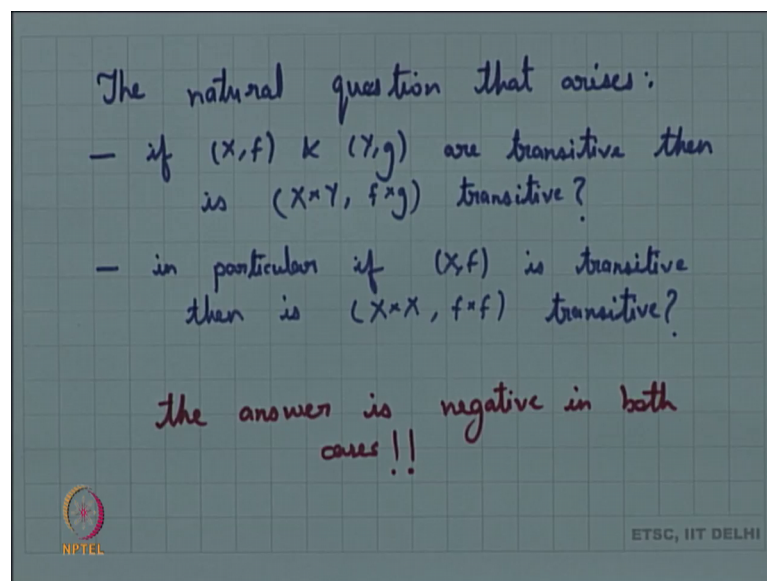 The natural question that arises:
— if (X,f) & (Y,g) are transitive then
is (X×Y, f×g) transitive?
— in particular if (X,f) is transitive
then is (X×X, f×f) transitive?
the answer is negative in both
cases!!
NPTEL
ETSC, IIT DELHI